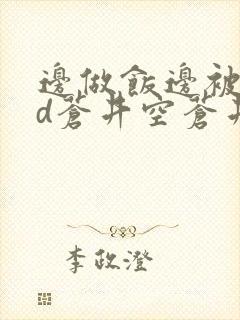 邊做飯邊被
d蒼井空蒼井
李政澄